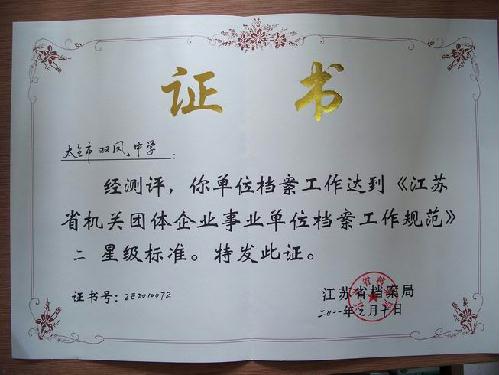 证书
太仓市双凤中学：
经测评，你单位档案工作达到《江苏
省机关团体企业事业单位档案工作规范》
二 星级标准。特发此证。
证书号：
江苏省档案局